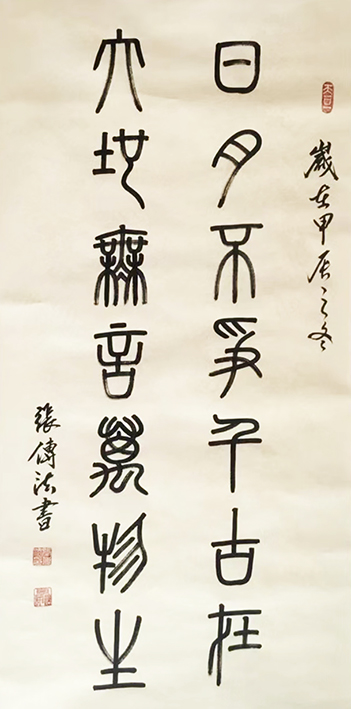 歲在甲辰之冬
日月不爭千古在
大地無言萬物生
張傳法書